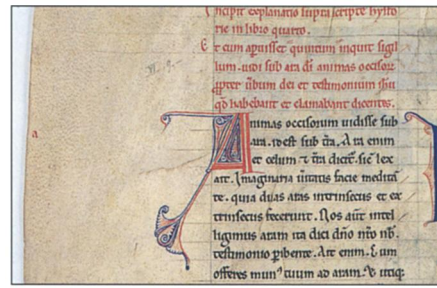 Incipit explanatio suprascripte hysto
rie in libro quarto.
Et cum apuisset quintum inquit sigil
lum. uidi sub ara dī animas occisoꝝ
ꝓpter ūbum dei et testimonium ihū
qđ habebant et clamabant dicentes.
a
Animas occisorum uidisse sub
ara. id est sub ťra. Ara enim
et celum ⁊ ťra dicit̄. sic̄ lex
ait. Imaginaria ūitatis facie medita
te. quia duas aras intrinsecus et ex
trinsecus fecerunt. Nos aūt intel
ligimus aram ita dici dn̄o nr̄o ub̄.
testimonio ꝑibente. Ait enim. Cum
offeres mun⁹ tuum ad aram. ⁊ utiq;